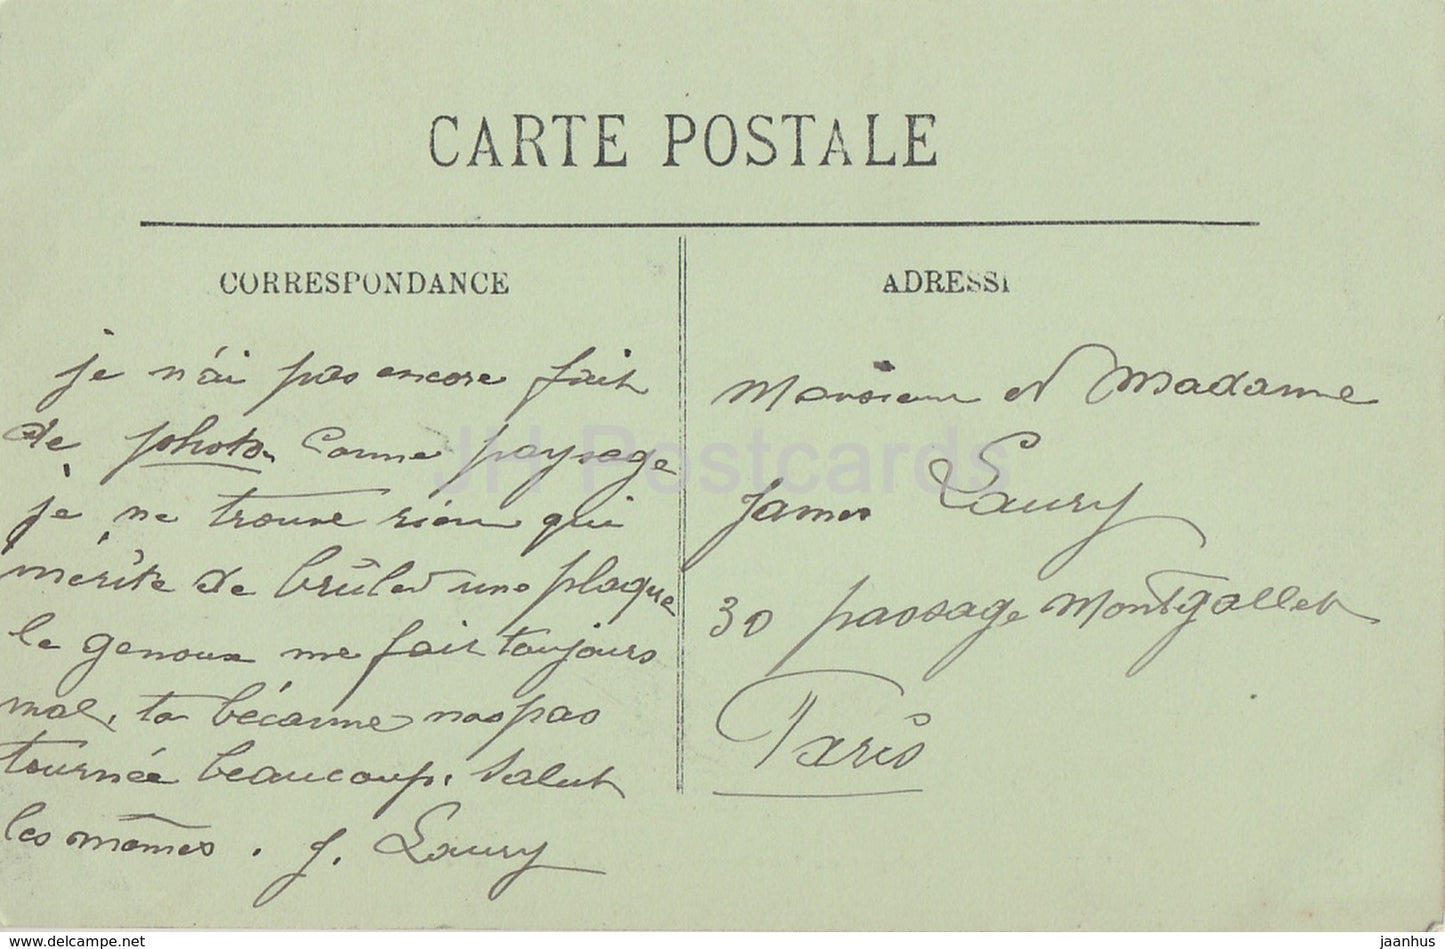 CARTE POSTALE
CORRESPONDANCE
je n'ai pas encore fait
de photo, comme paysage
je ne trouve rien qui
mérite de brûler une plaque
le genoux me fait toujours
mal, ta bécanne pas
tournée beaucoup. Salut
les mômes. J. Laury
ADRESSE
Monsieur et Madame
James Laury
30 passage Montgallet
Paris
JH Postcards
www.delcampe.net
jaanhus